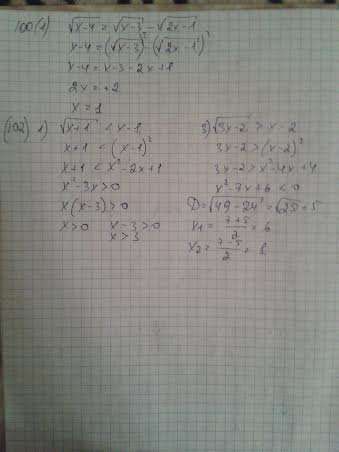 100(1) √x-4 = √x-3 - √2x-1
x-4 = (√x-3)² - (√2x-1)²
x-4 = x-3-2x+1
2x = +2
x = 1
(102) 1) √x+1 < x-1
x+1 < (x-1)²
x+1 < x²-2x+1
x²-3x>0
x(x-3)>0
x>0 x-3>0
x>3
3) √3x-2 > x-2
3x-2 > (x-2)²
3x-2 > x²-4x+4
x²-7x+6 < 0
D=√49-24=√25=5
x₁ = 7+5/2 = 6
x₂ = 7-5/2 = 1